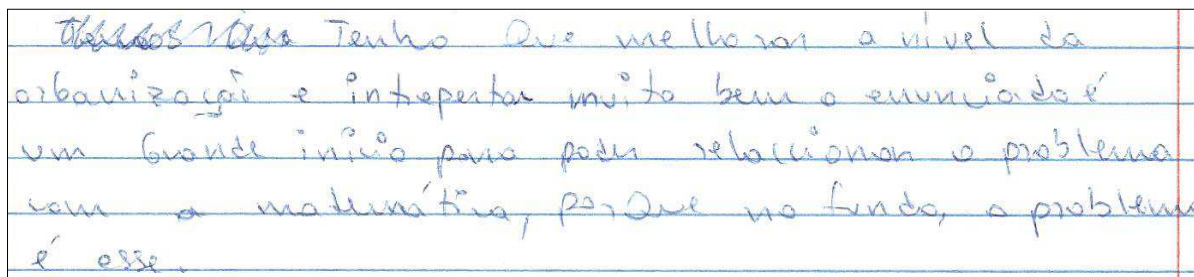 Tenho Que melhorar a nível da
orbanização e intrepertar muito bem o enunciado é
um Grande início para poder relaccionar o problema
com a matemática, porQue no fundo, o problema
é esse.